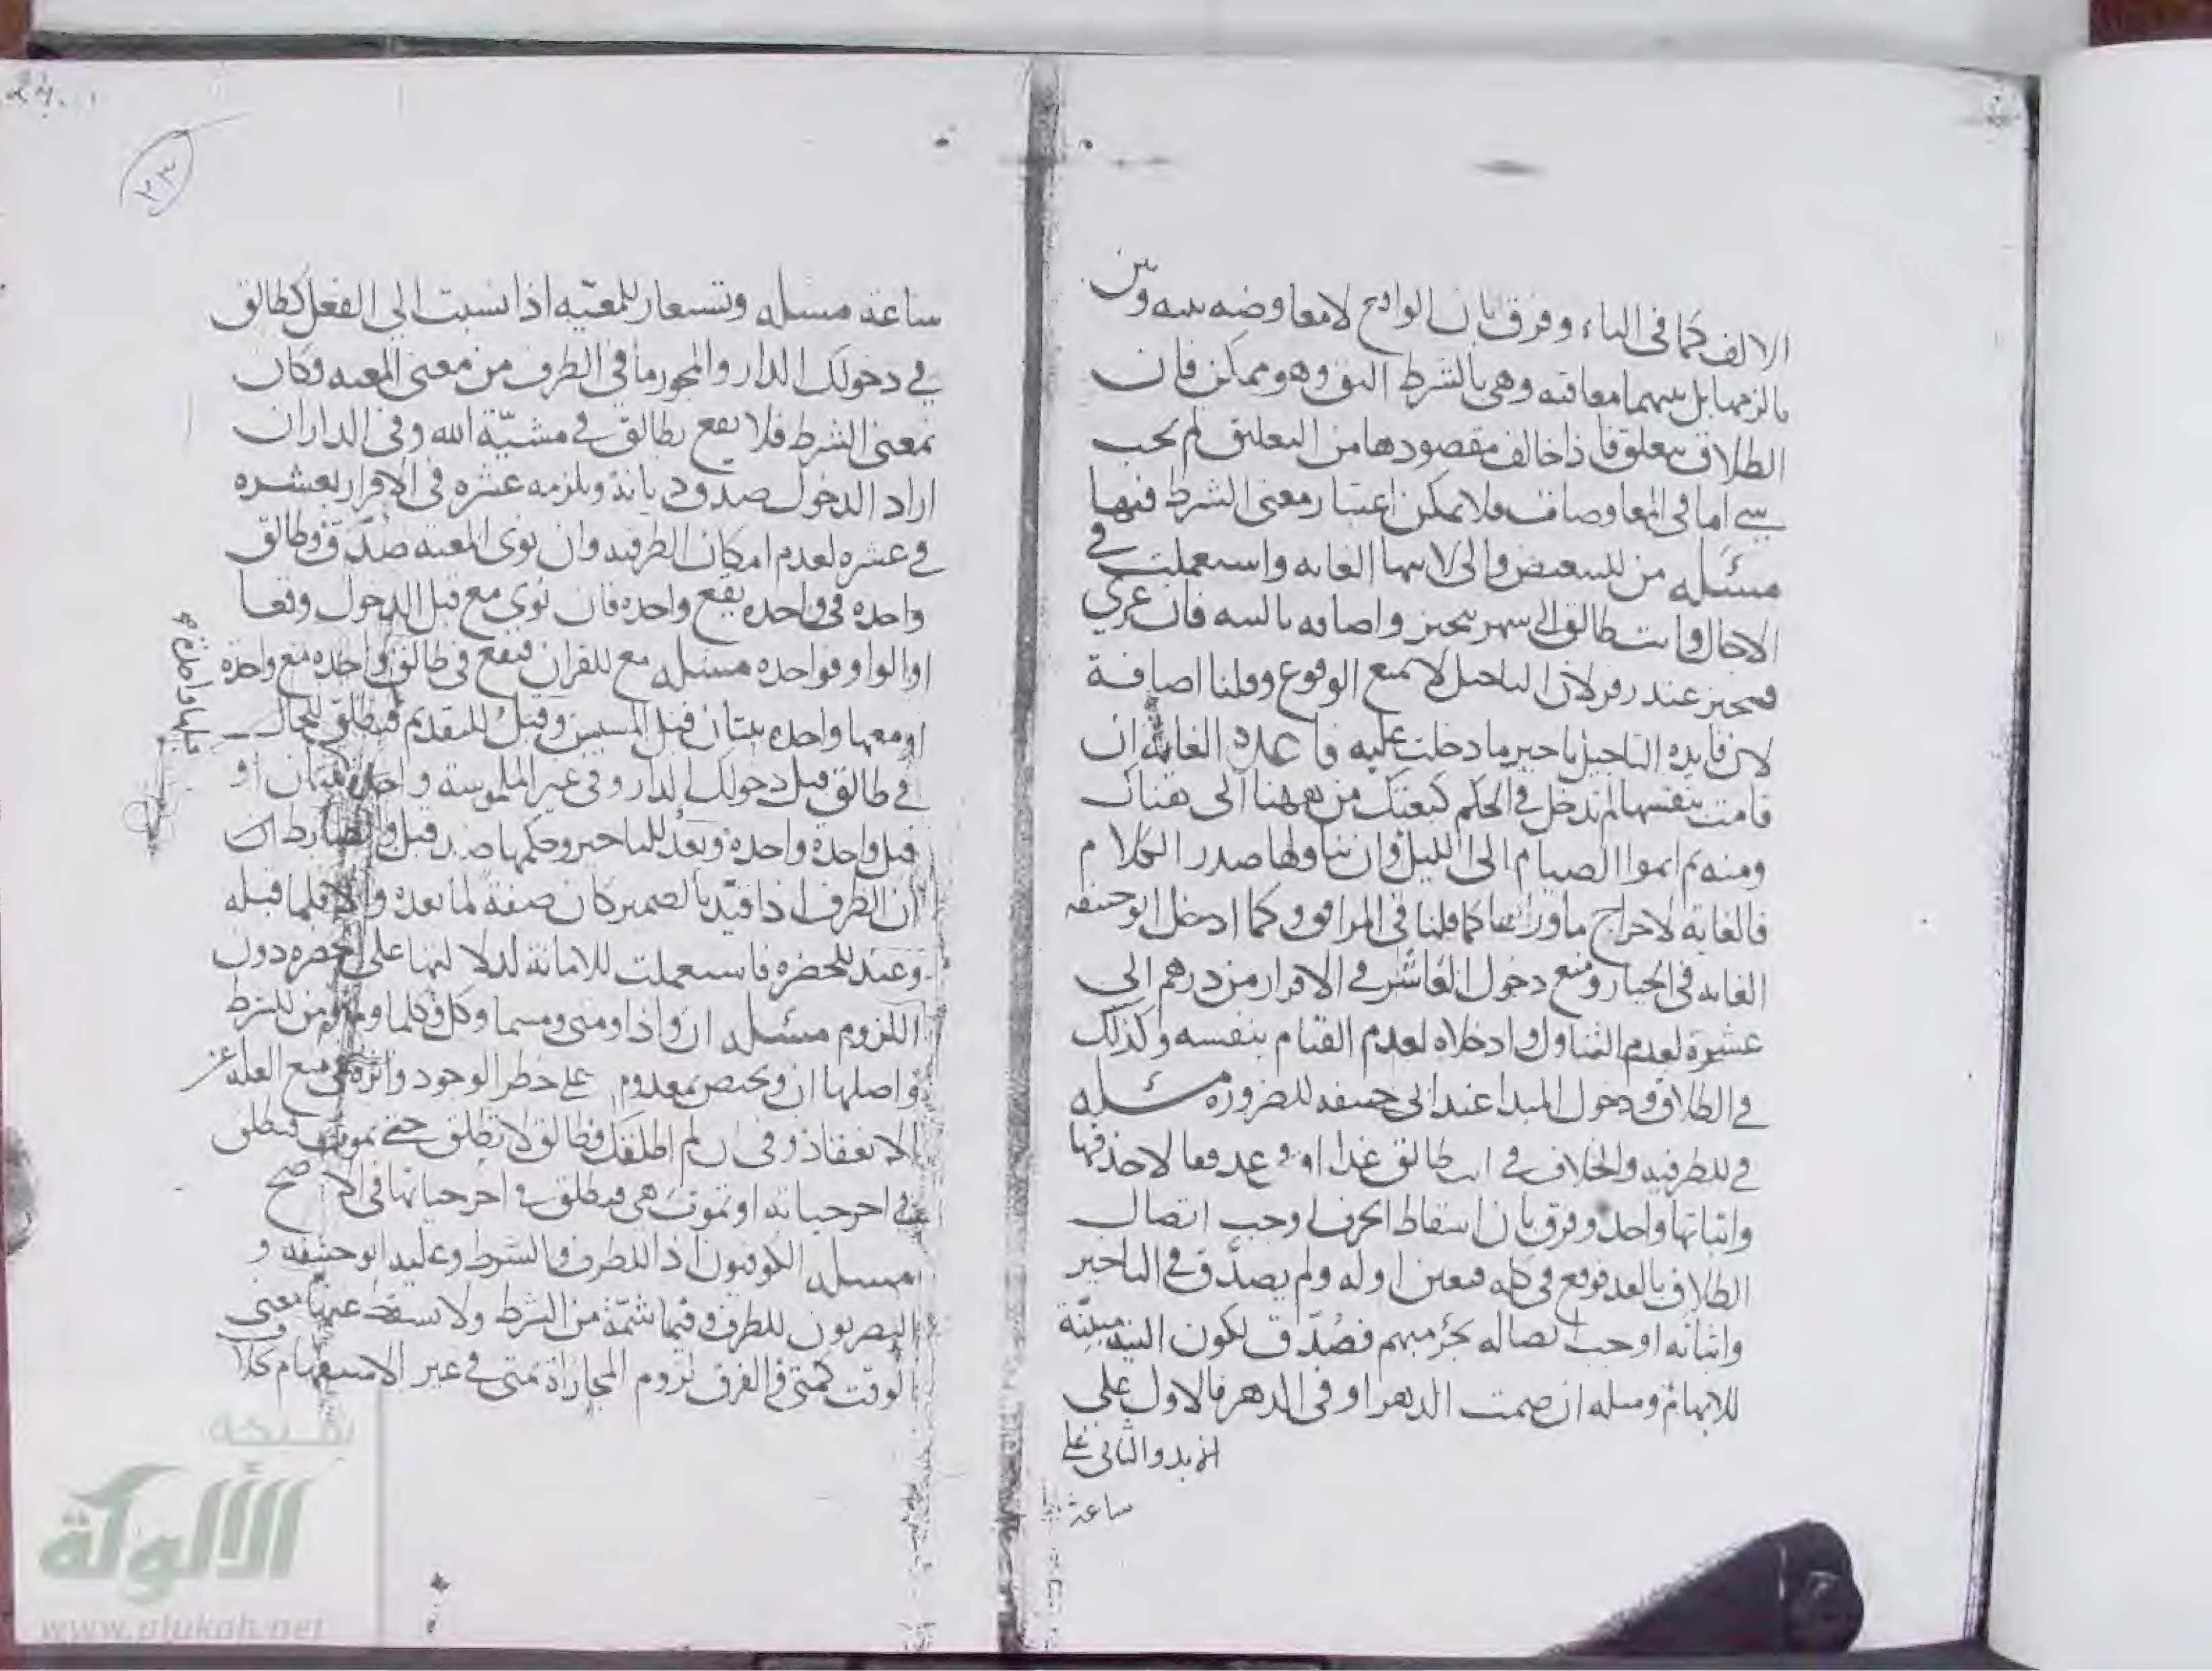 الالف كما في الباء وفرق بان الواقع لا معاوضه بينه وبين
ما لزمها بل بينهما معاقبه وهي بالشرط اليق وهو ممكن فان
الطلاق يتعلق فاذا خالف مقصودها من التعليق لم يجب
شي اما في المعاوضات فلا يمكن اعتبار معنى الشرط فيها
مسئله من للتبعيض والى لانتهاء الغايه واستعملت في
الاجال وانت طالق الى شهر تنجيز واضافه بالنيه فان عري
فتنجيز عند زفر لان التاجيل لا يمنع الوقوع وقلنا اضافة
لان فايده التاجيل تاخير ما دخلت عليه وقاعدة الغاية ان
قامت بنفسها لم تدخل في الحكم كبعتك من ههنا الى هناك
ومنه ثم اتموا الصيام الى الليل وان تناولها صدر الكلام
فالغاية لاخراج ما وراءها كما قلنا في المرافق وكما ادخل ابو حنيفه
الغايه في الخيار ومنع دخول العاشر في الاقرار من درهم الى
عشرة لعدم التناول وادخلاه لعدم القيام بنفسه وكذلك
في الطلاق ودخول المبدا عند ابي حنيفه للضرورة مسئله
في للظرفيه والخلاف في انت طالق غدا او في غد فعا لا حذفها
واثباتها واحد وفرق بان اسقاط الحرف اوجب اتصال
الطلاق بالغد فوقع في كله فتعين اوله ولم يصدق في التاخير
واثباته اوجب اتصاله بجزء مبهم فصدق لكون النية مبينة
للابهام ومسله ان صمت الدهر او في الدهر فالاول على
الابد والثاني على
ساعة
ساعة مسئله وتستعار للمعيّه اذا نسبت الى الفعل كطالق
في دخولك الدار والمجوز ما في الظرف من معنى المعيه وكان
بمعنى الشرط فلا يقع بطالق في مشيّة الله وفي الدار ان
اراد الدخول صدق ديانة ويلزمه عشره في الاقرار بعشره
في عشره لعدم امكان الظرفيه وان نوى المعيه صُدّق وطالق
واحده في واحده يقع واحده فان نوى مع قبل الدخول وقعا
او الواو فواحده مسئله مع للقران فيقع في طالق واحده مع واحدة
او معها واحده ثنتان قبل المسيس وقبل للتقديم فتطلق للحال
في طالق قبل دخولك الدار وفي غير الملموسة واحدة ثنتان او
قبل واحدة واحدة وبعد للتاخير وحكمها ضد قبل والضابط ان
ان الظرف اذا قيد بالضمير كان صفة لما بعده والا فلما قبله
وعند للحضره فاستعملت للامانة لدلالتها على الحضره دون
اللزوم مسئله ان واذا ومتى ومتيما وكل وكلما ومن للشرط
واصلها ان ويختص بمعدوم على خطر الوجود واثره في منع العله عن
الانعقاد وفي ان لم اطلقك فطالق لا تطلق حتى يموت فتطلق
في اخر حياته او تموت هي فتطلق في اخر حياتها في الاصح
مسئله الكوفيون اذا للظرف والشرط وعليه ابو حنيفه و
البصريون للظرف وفيها شمّة من الشرط ولا يسقط عنها معنى
الوقت كمتى والفرق لزوم المجازاة بمتى في غير الاستفهام كلا
٢٣
24
شبكة
الألوكة
www.alukah.net